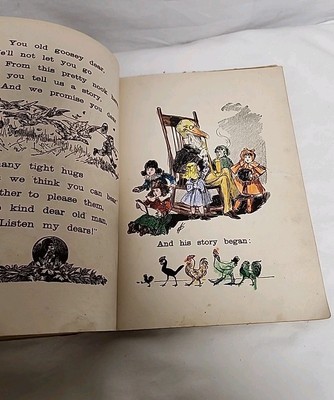 You old goosey dear,
'll not let you go
From this pretty nook
you tell us a story,
And we promise you
many tight hugs
we think you can
ther to please them,
kind dear old man,
Listen my dears!"
And his story began: